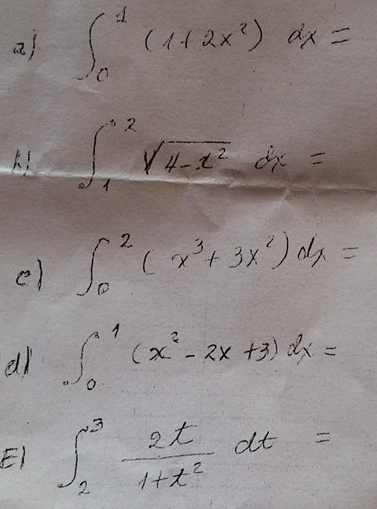 a) ∫₀¹ (1+2x²) dx =
b) ∫₁² √(4-x²) dx =
c) ∫₀² (x³+3x²) dx =
d) ∫₀¹ (x²-2x+3) dx =
E) ∫₂³ 2t/(1+t²) dt =